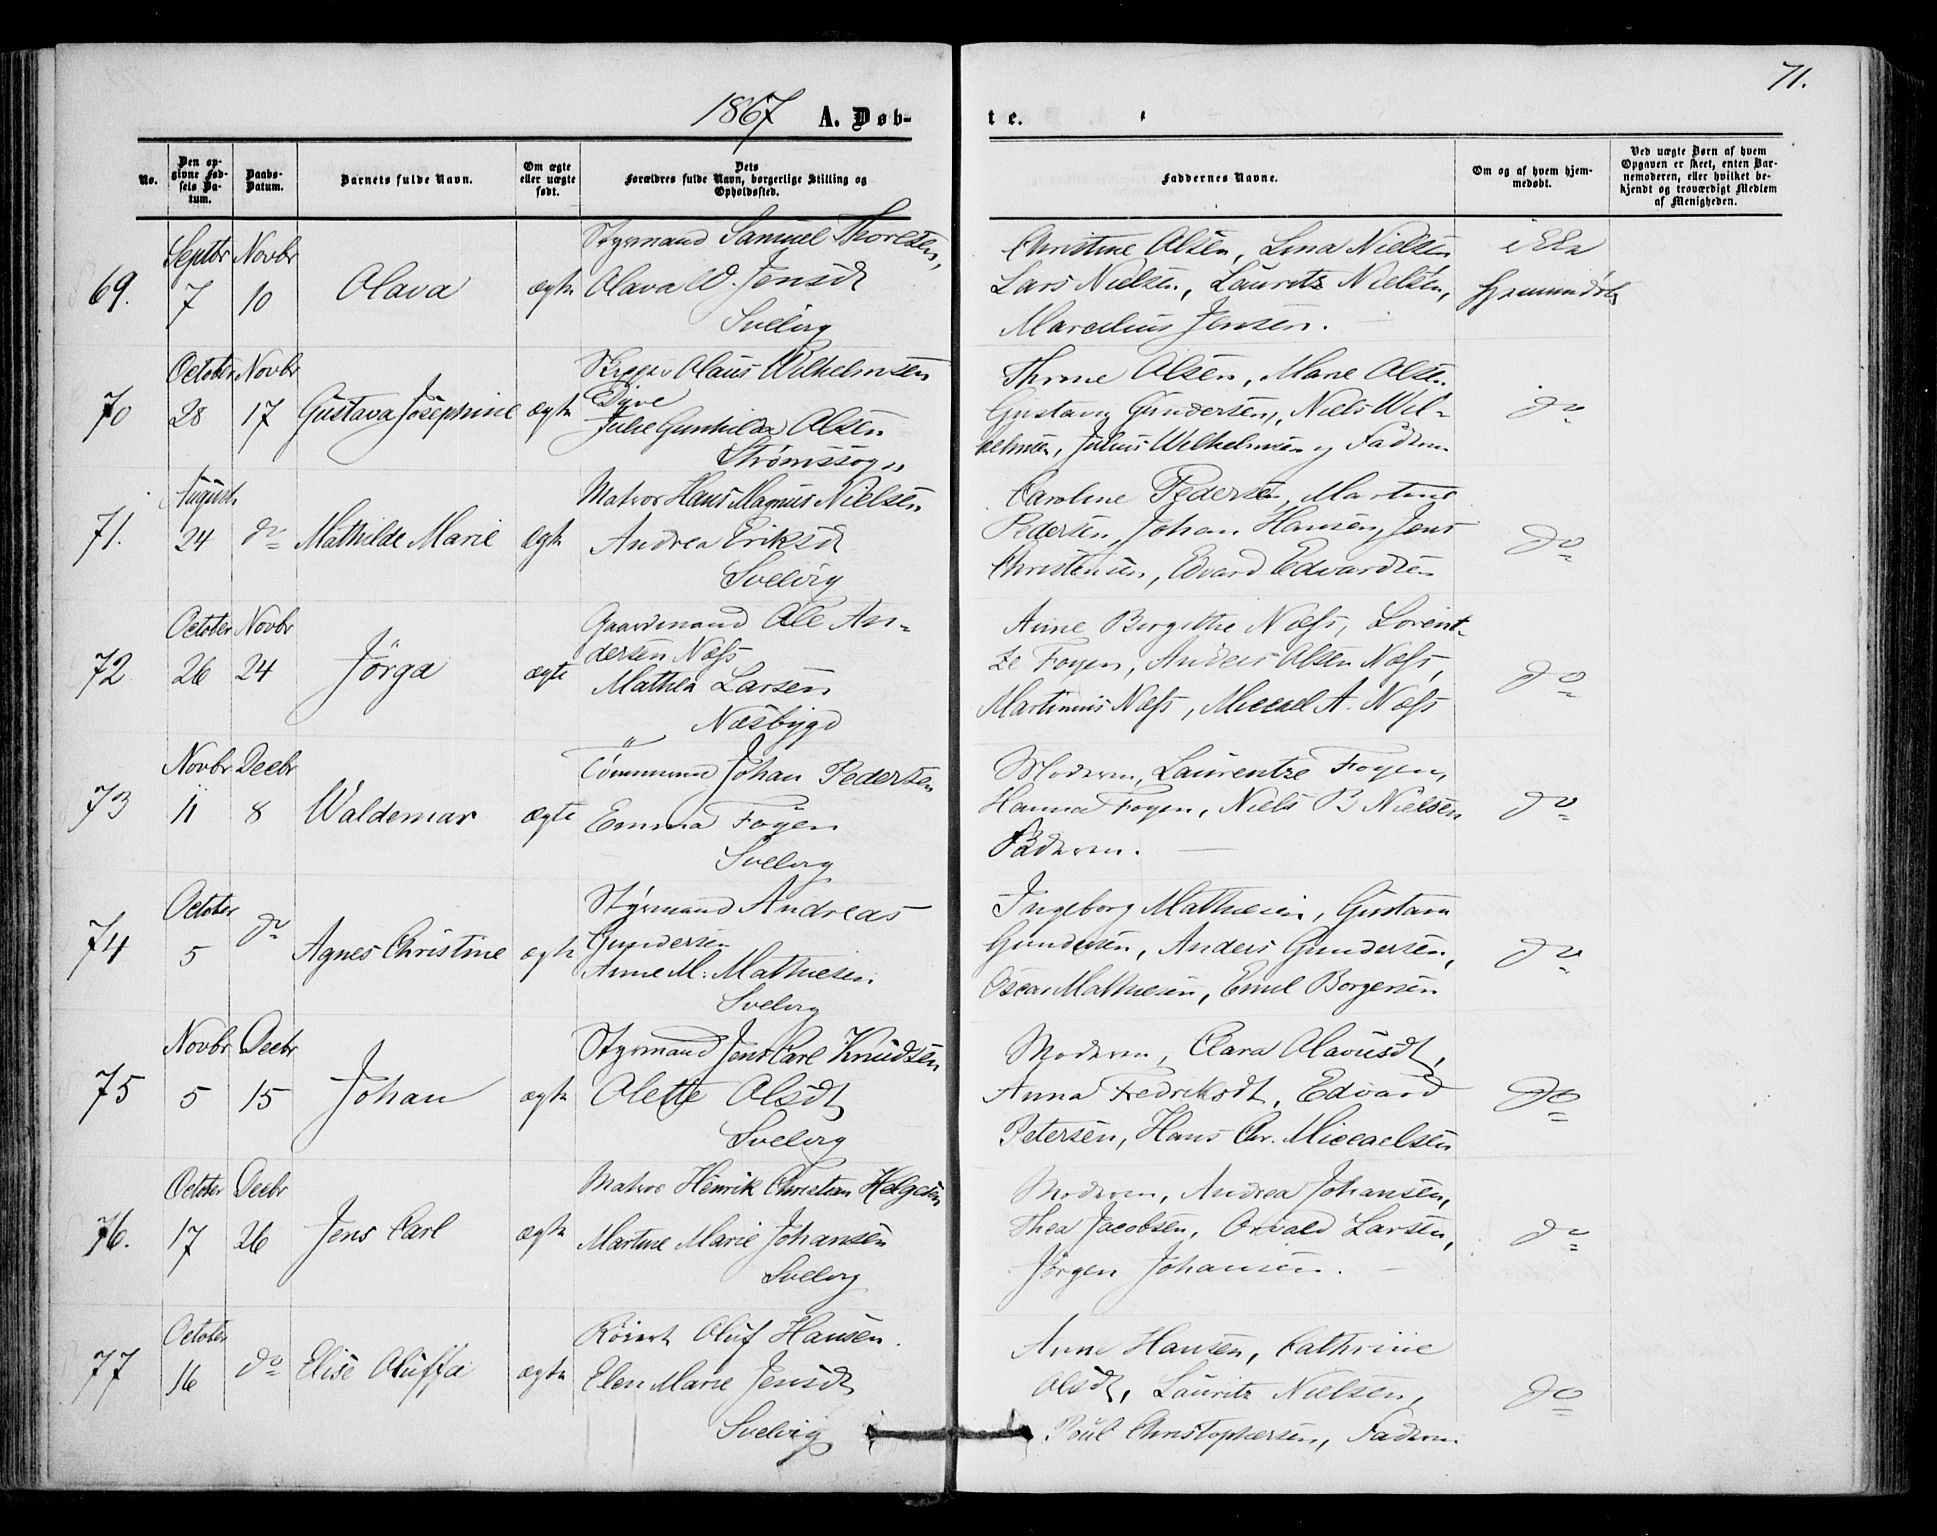 71.
1867 A. Døb-
te.
No.
Den op-
givne Fød-
sels Da-
tum.
Daabs-
Datum.
Barnets fulde Navn.
Om ægte
eller uægte
født.
Dets
Forældres fulde Navn, borgerlige Stilling og
Opholdssted.
Faddernes Navne.
Om og af hvem hjem-
medøbt.
Ved uægte Børn af hvem
Opgaven er skeet, enten Bar-
nemoderen, eller hvilket be-
kjendt og troværdigt Medlem
af Menigheden.
69.
Septbr
7
Novbr
10
Olava
ægte
Styrmand Samuel Thoresen,
Olava W. Jensdt
Svelvig
Christine Olsen, Lina Nielsen
Lars Nielsen, Lauritz Nielsen,
Marcelius Jensen.
ikke
hjemmedøbt
70
October
28
Novbr
17
Gustava Josephine
ægte
Olaus Wilhelmsen
Dyve
Julie Gunhilda Olsen
Strømssogn
Thrine Olsen, Marie Olsen
Gustava Gundersen, Niels Wil-
helmsen, Julius Wilhelmsen og Faderen
do
71.
August
24
do
Mathilde Marie
ægte
Matros Hans Magnus Nielsen
Andrea Eriksdt
Svelvig
Caroline Pedersen, Martine
Pedersen, Johan Hansen, Jens
Christensen, Edvard Edvardsen
do
72
October
26
Novbr
24
Jörga
ægte
Gaardmand Ole An-
dersen Næss
Mathea Larsen
Næsbygd
Anne Birgithe Næss, Lorent-
ze Foyen, Anders Olsen Næss,
Martinius Næss, Miccael A. Næss
do
73
Novbr
11
Decbr
8
Waldemar
ægte
Tömmermand Johan Pedersen
Emma Foyen
Svelvig
Moderen, Laurentze Foyen,
Hanna Foyen, Niels B Nielsen
Faderen.
do
74
October
5
do
Agnes Christine
ægte
Styrmand Andreas
Gundersen
Anne M. Mathiesen
Svelvig
Ingeborg Mathiesen, Gustava
Gundersen, Anders Gundersen,
Oscar Mathiesen, Emil Borgersen
do
75
Novbr
5
Decbr
15
Johan
ægte
Styrmand Jens Carl Knudsen
Olette Olsdt
Svelvig
Moderen, Clara Olausdt,
Anna Fredriksdt, Edvard
Petersen, Hans Chr. Miccaelsen
do
76.
October
17
Decbr
26
Jens Carl
ægte
Matros Henrik Christian Helgesen
Martine Marie Johansen
Svelvig
Moderen, Andrea Johansen,
Thea Jacobsen, Osvald Larsen,
Jørgen Johansen.
do
77
October
16
do
Elise Oluffa
ægte
Oluf Hansen.
Elen Marie Jensdt
Svelvig
Anne Hansen, Cathrine
Olsdt, Lauritz Nielsen,
Poul Christophersen, Faderen.
do